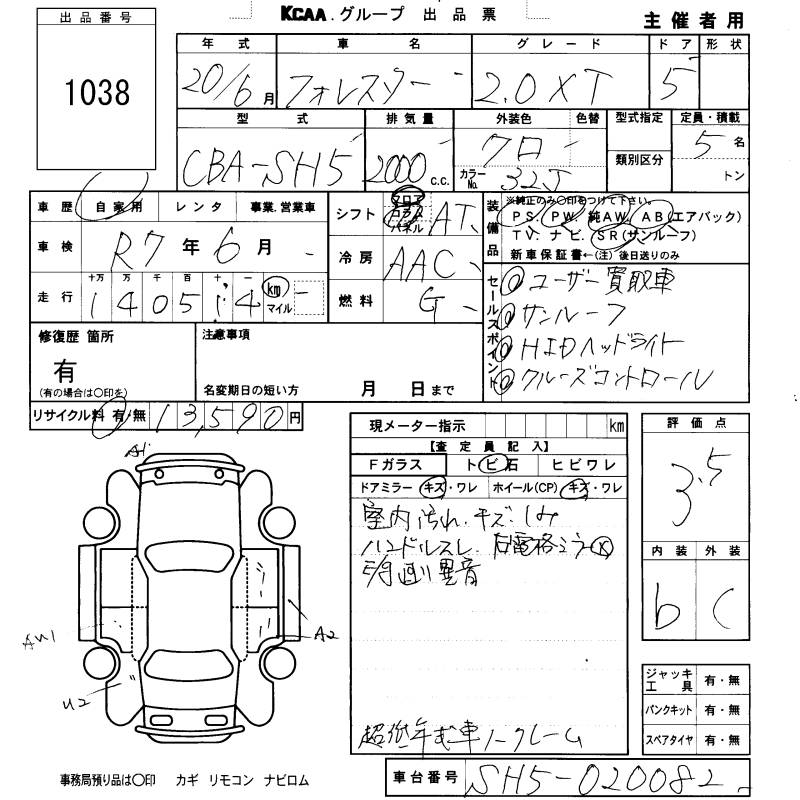 出品番号
1038
KCAA.グループ 出品票
主催者用
年式 車名 グレード ドア 形状
20/6月 フォレスター 2.0XT 5
型式 排気量 外装色 色替 型式指定 定員・積載
CBA-SH5 2000c.c. クロ 5名
カラーNo. 32J 類別区分 トン
車歴 自家用 レンタ 事業.営業車
車検 R7年6月
走行 十万 万 千 百 十 一
140514 km マイル
シフト フロア コラム パネル AT
冷房 AAC
燃料 G
装備品 ※純正のみ○印をつけて下さい。
PS. PW. 純AW. AB(エアバック)
TV. ナビ. SR(サンルーフ)
新車保証書←(注)後日送りのみ
セールスポイント
ユーザー買取車
サンルーフ
HIDヘッドライト
クルーズコントロール
修復歴 箇所
有
(有の場合は○印を)
注意事項
名変期日の短い方 月 日まで
リサイクル料 有/無 13,590円
現メーター指示 km
【査定員記入】
Fガラス トビ石 ヒビワレ
ドアミラー キズ・ワレ ホイール(CP) キズ・ワレ
室内汚れ.キズ.しみ
ハンドルスレ. 右電格ミラー
異音
超低年式車ノークレーム
評価点
3.5
内装 外装
b C
A1
AW1
A2
U2
ジャッキ工具 有・無
パンクキット 有・無
スペアタイヤ 有・無
事務局預り品は○印 カギ リモコン ナビロム
車台番号 SH5-020082